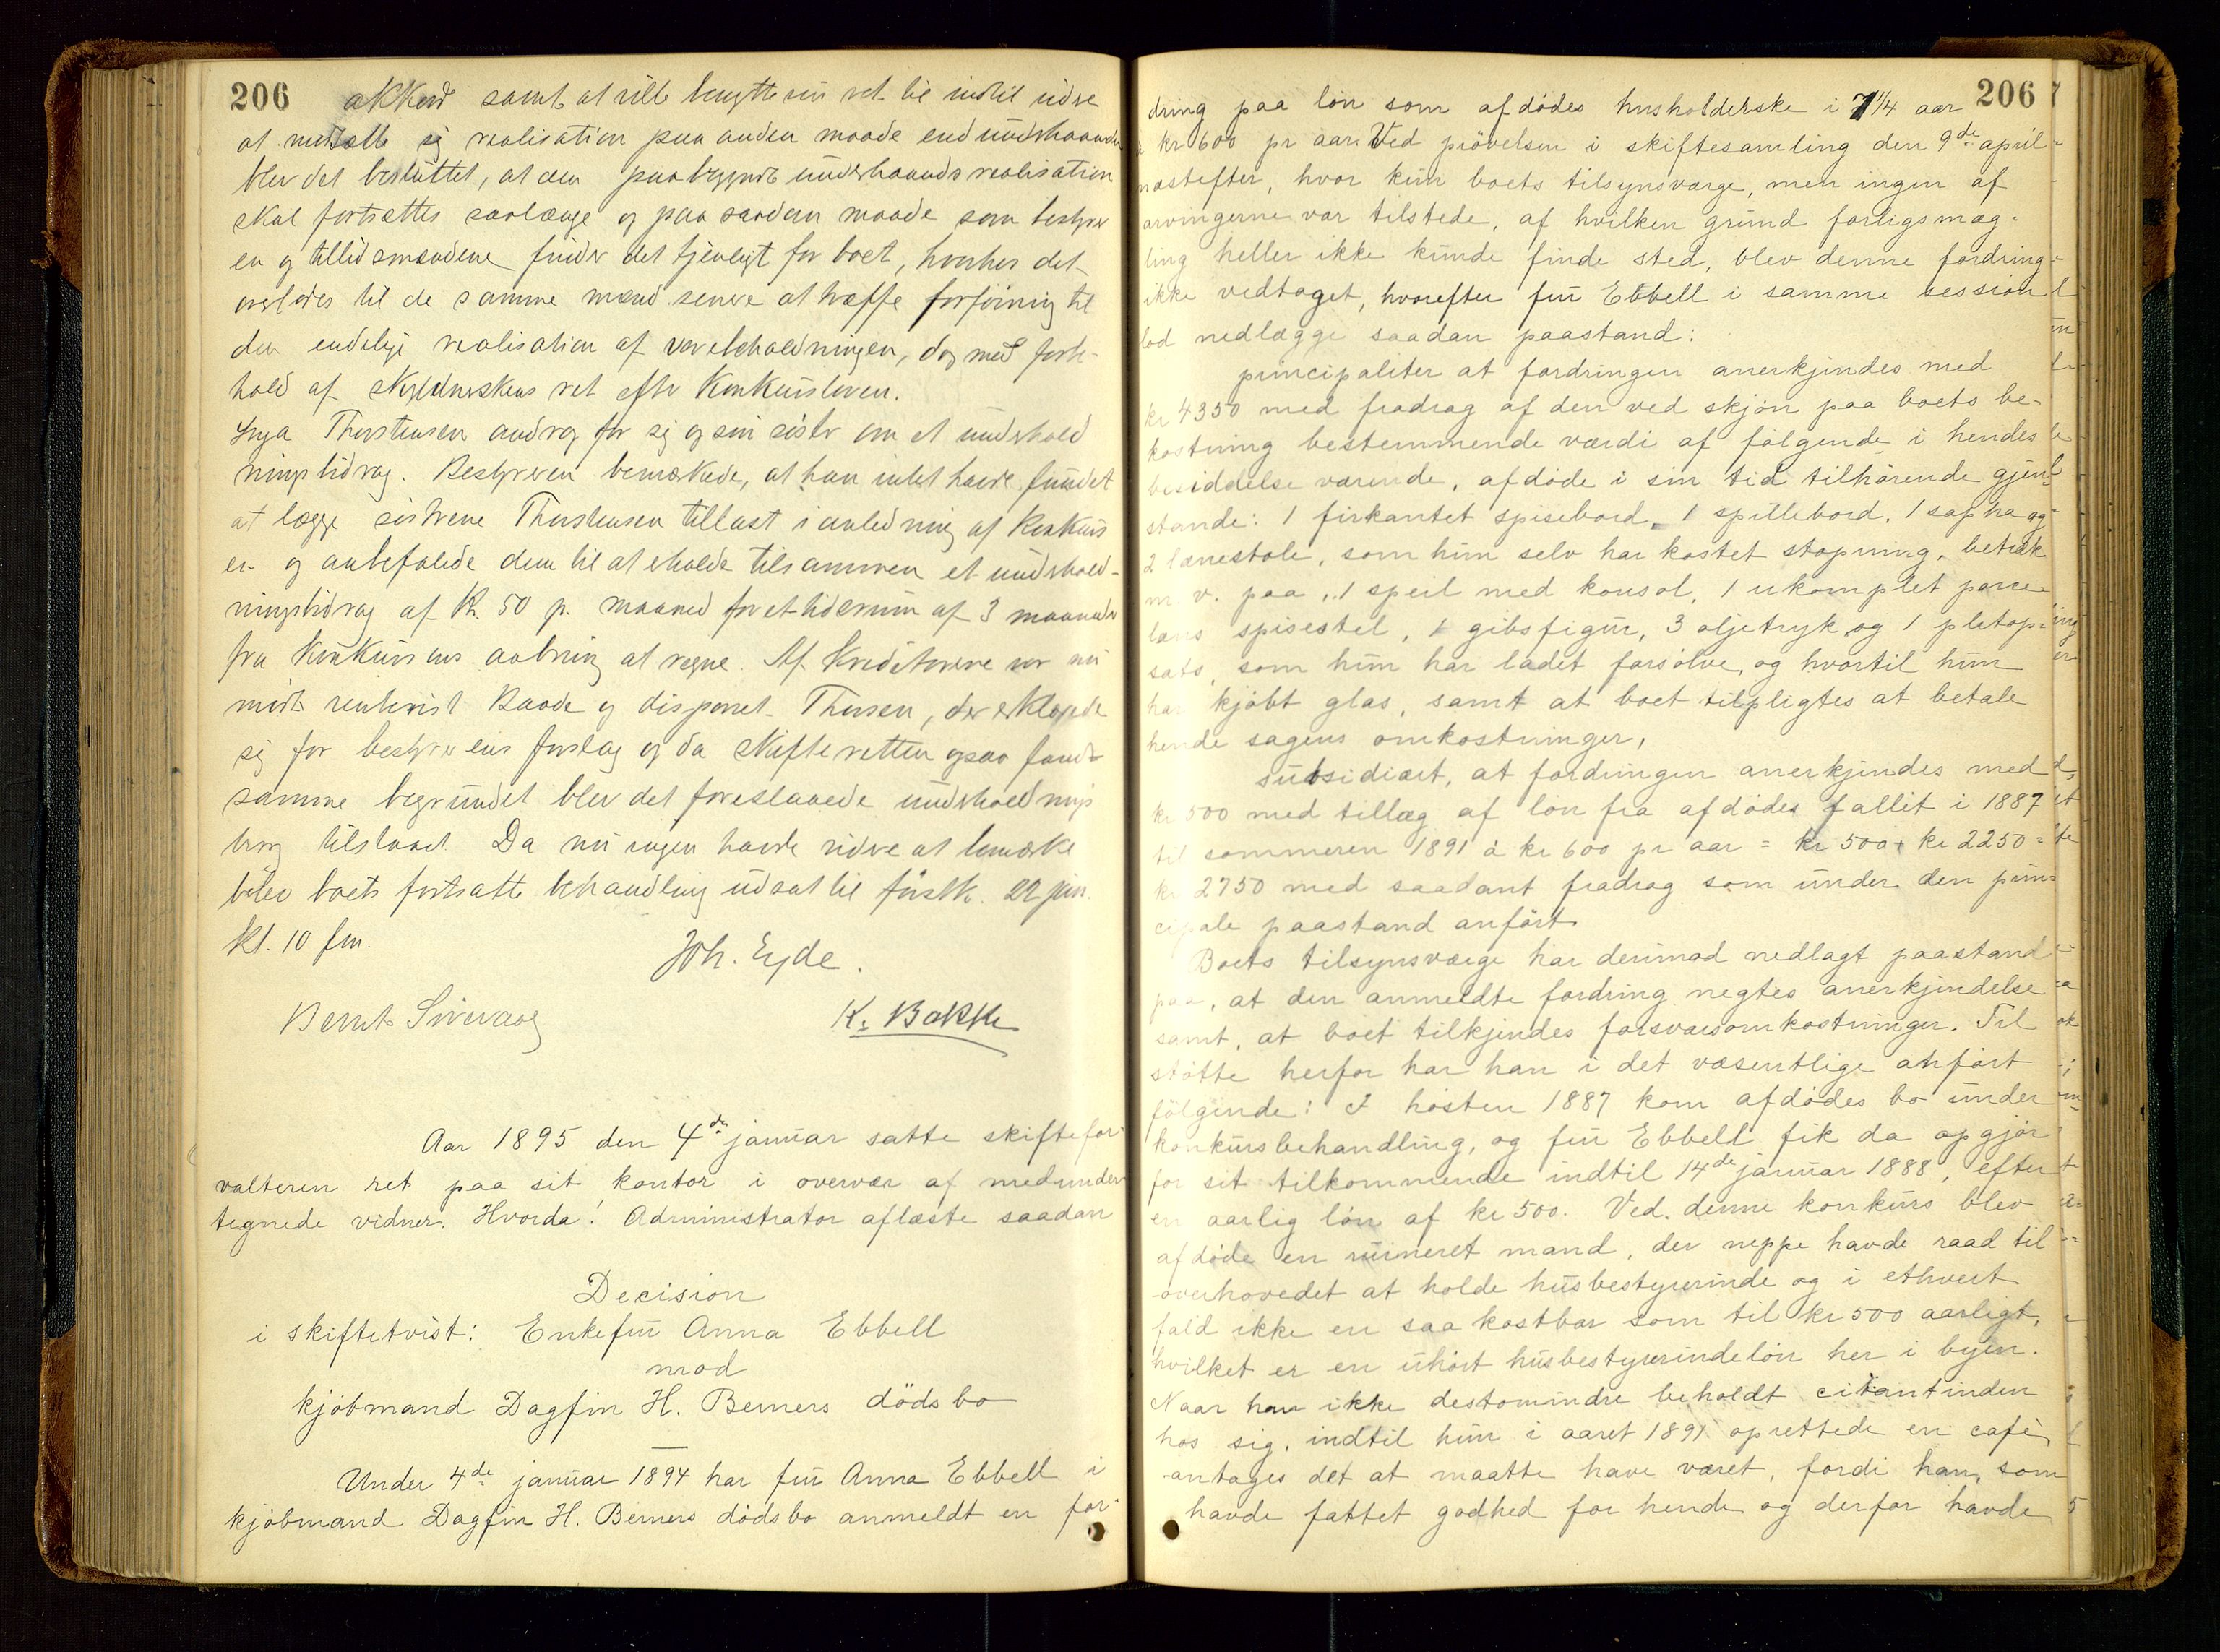 206
akkord samt at ville benytte sin ret til indtil videre
at modsætte sig realisation paa anden maade end underhaanden
blev det besluttet, at den paabegyndte underhaandsrealisation
skal fortsættes saalænge og paa saadan maade som bestyrer
en og tillidsmændene finder det tjenligt for boet, hvorhos det
overlodes til de samme mænd senere at træffe forföining til
den endelige realisation af varebeholdningen, dog med forbe-
hold af skyldnerskens ret efter konkursloven.
Inga Thorstensen androg for sig og sin söster om et underhold
ningsbidrag. Bestyreren bemærkede, at han intet havde fundet
at lægge söstrene Thorstensen til last i anledning af konkurs
en og anbefalede dem til at erholde tilsammen et underhold-
ningsbidrag af Kr. 50 pr. maaned for et tidsrum af 3 maaneder
fra konkursens aabning at regne. Af kreditorerne var nu
mödt rentenist Baade og disponent Thorsen, der erklærede
sig for bestyrerens forslag og da skifteretten ogsaa fandt
samme begrundet blev det foreslaaede underholdnings
brag tilstaaet. Da nu ingen havde videre at bemærke
blev boets fortsatte behandling udsat til förstk. 22 jan.
kl. 10 fm.
Joh. Eyde.
Bernt Sirevaag
K. Bakke
Aar 1895 den 4de januar satte skiftefor-
valteren ret paa sit kontor i overvær af medunder
tegnede vidner. Hvorda! Administrator aflæste saadan
Decision
i skiftetvist: Enkefru Anna Ebbell
mod
kjöbmand Dagfin H. Berners dödsbo
Under 4de januar 1894 har fru Anna Ebbell i
kjöbmand Dagfin H. Berners dödsbo anmeldt en for-
206
dring paa lön som afdödes husholderske i 7 1/4 aar
à kr 600 pr aar. Ved prövelsen i skiftesamling den 9de april
næstefter, hvor kun boets tilsynsværge, men ingen af
arvingerne var tilstede, af hvilken grund forligsmæg-
ling heller ikke kunde finde sted, blev denne fordring
ikke vedtaget, hvorefter fru Ebbell i samme session
lod nedlægge saadan paastand:
principaliter at fordringen anerkjendes med
kr 4350 med fradrag af den ved skjön paa boets be-
kostning bestemmende værdi af fölgende i hendes
besiddelse værende, afdöde i sin tid tilhörende gjen-
stande: 1 firkantet spisebord, 1 spillebord, 1 sopha og
2 lænestole, som hun selv har kostet stopning, betræk
m. v. paa, 1 speil med konsol, 1 ukomplet porce-
læns spisestel, 1 gibsfigur, 3 oljetryk og 1 pletop-
sats, som hun har ladet forsölve, og hvortil hun
har kjöbt glas, samt at boet tilpligtes at betale
hende sagens omkostninger,
subsidiært, at fordringen anerkjendes med
kr 500 med tillæg af lön fra afdödes fallit i 1887
til sommeren 1891 à kr 600 pr aar = kr 500 + kr 2250 =
kr 2750 med saadant fradrag som under den prin-
cipale paastand anfört.
Boets tilsynsværge har derimod nedlagt paastand
paa, at den anmeldte fordring negtes anerkjendelse
samt, at boet tilkjendes forsvarsomkostninger. Til
stötte herfor har han i det væsentlige anfört
fölgende: I hösten 1887 kom afdödes bo under
konkursbehandling, og fru Ebbell fik da opgjör
for sit tilkommende indtil 14de januar 1888, efter
en aarlig lön af kr 500. Ved denne konkurs blev
afdöde en ruineret mand, der neppe havde raad til
overhovedet at holde husbestyrerinde og i ethvert
fald ikke en saa kostbar som til kr 500 aarligt,
hvilket er en uhört husbestyrerindelön her i byen.
Naar han ikke destomindre beholdt citantinden
hos sig, indtil hun i aaret 1891 oprettede en café,
antages det at maatte have været, fordi han, som
havde fattet godhed for hende og derfor havde